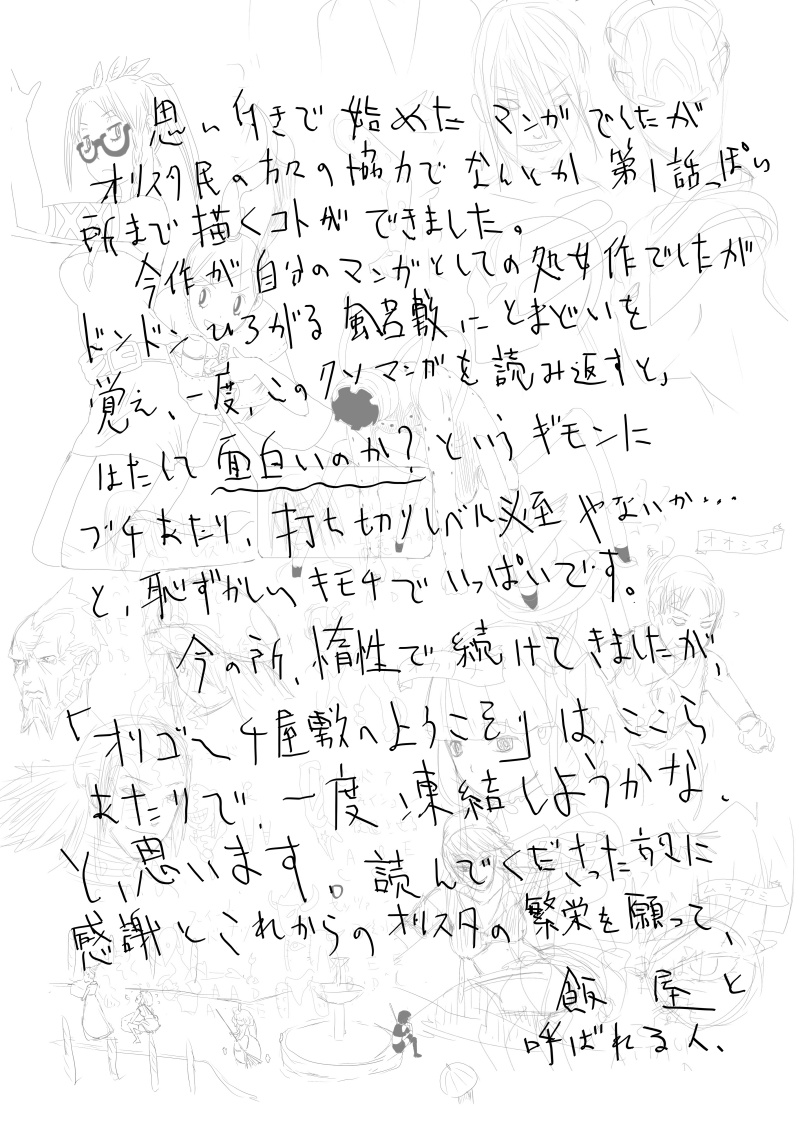 思い付きで始めたマンガでしたが
オリスタ民の方々の協力でなんとか第1話っぽい
所まで描くコトができました。
今作が自分のマンガとしての処女作でしたが
ドンドンひろがる風呂敷にとまどいを
覚え、一度、このクソマンガを読み返すと、
はたして面白いのか?というギモンに
ブチあたり、打ち切りレベル必至やないか…
と、恥ずかしいキモチでいっぱいです。
オオシマ
今の所、惰性で続けてきましたが、
「オリゴ〜チ屋敷へようこそ」は、ここら
あたりで、一度凍結しようかな、
と、思います。読んでくださった方々に
ムラカミ
感謝とこれからのオリスタの繁栄を願って、
飯屋と
呼ばれる人、